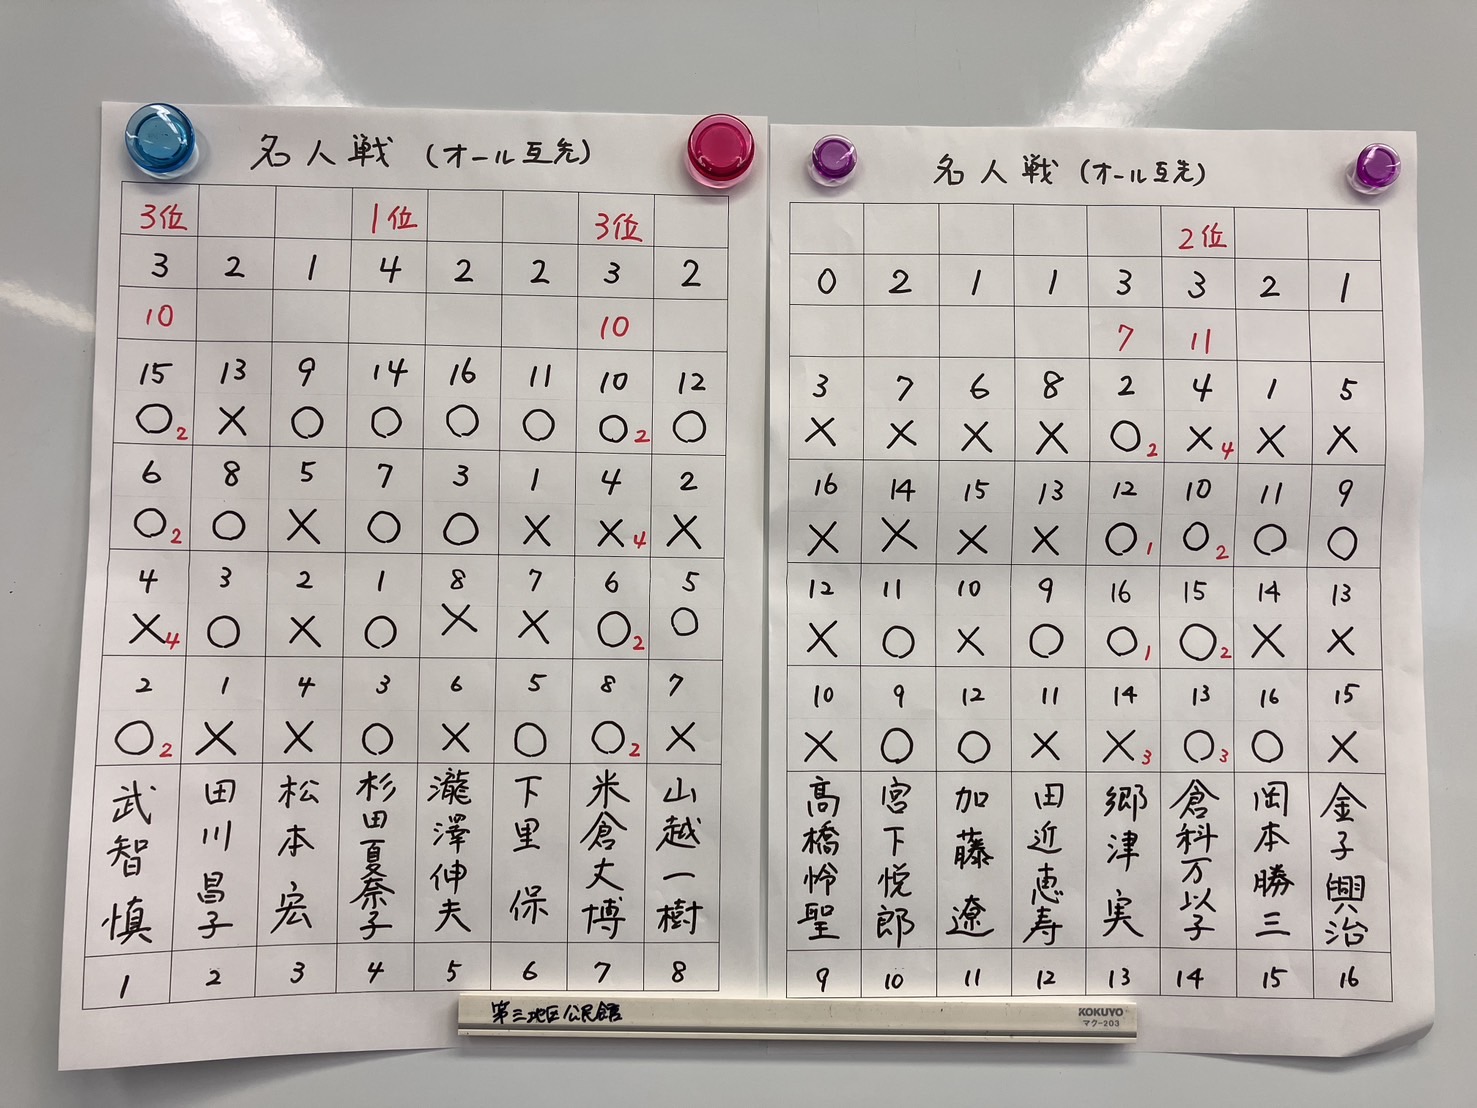 名人戦(オール互先)
3位 1位 3位
3 2 1 4 2 2 3 2
10 10
15 13 9 14 16 11 10 12
○2 × ○ ○ ○ ○ ○2 ○
6 8 5 7 3 1 4 2
○2 ○ × ○ ○ × ×4 ×
4 3 2 1 8 7 6 5
×4 ○ × ○ × × ○2 ○
2 1 4 3 6 5 8 7
○2 × × ○ × ○ ○2 ×
武智慎 田川昌子 松本宏 杉田夏奈子 瀧澤伸夫 下里保 米倉丈博 山越一樹
1 2 3 4 5 6 7 8
名人戦(オール互先)
2位
0 2 1 1 3 3 2 1
7 11
3 7 6 8 2 4 1 5
× × × × ○2 ×4 × ×
16 14 15 13 12 10 11 9
× × × × ○1 ○2 ○ ○
12 11 10 9 16 15 14 13
× ○ × ○ ○1 ○2 × ×
10 9 12 11 14 13 16 15
× ○ ○ × ×3 ○3 ○ ×
高橋怜聖 宮下悦郎 加藤遼 田近恵寿 郷津実 倉科万以子 岡本勝三 金子興治
9 10 11 12 13 14 15 16
第三地区公民館
KOKUYO
マク-203